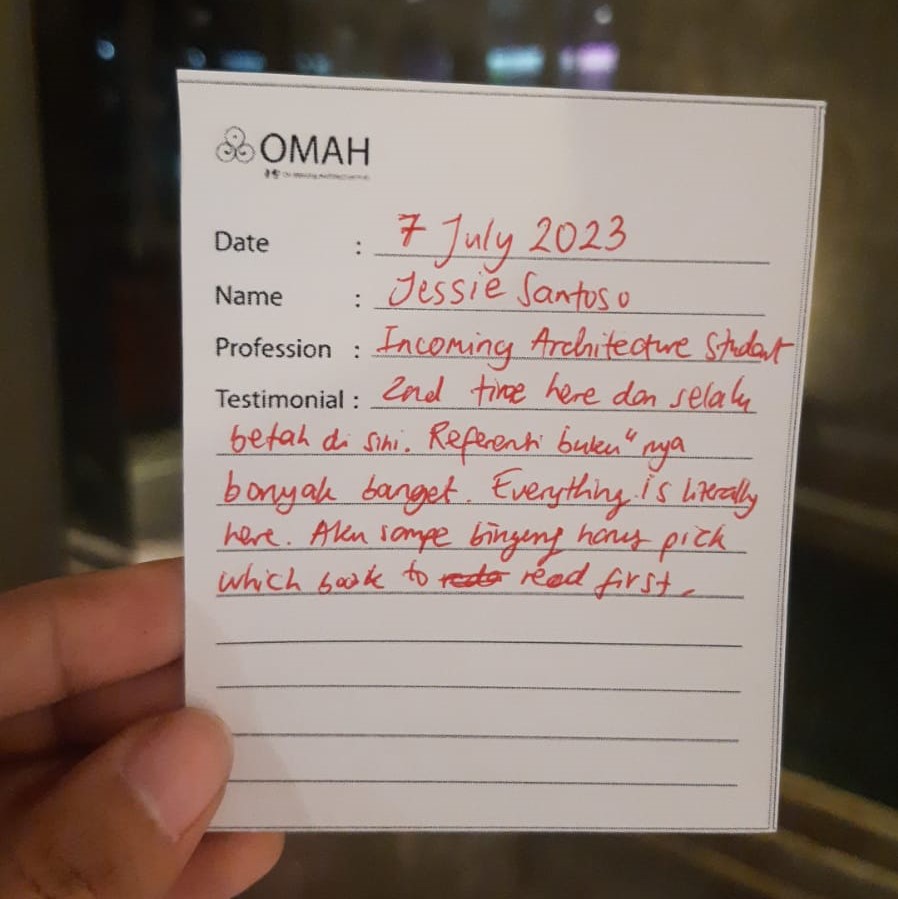 OMAH
Date : 7 July 2023
Name : Jessie Santoso
Profession : Incoming Architecture Student
Testimonial : 2nd time here dan selalu
betah di sini. Referensi buku" nya
banyak banget. Everything is literally
here. Aku sampe bingung harus pick
which book to read first.